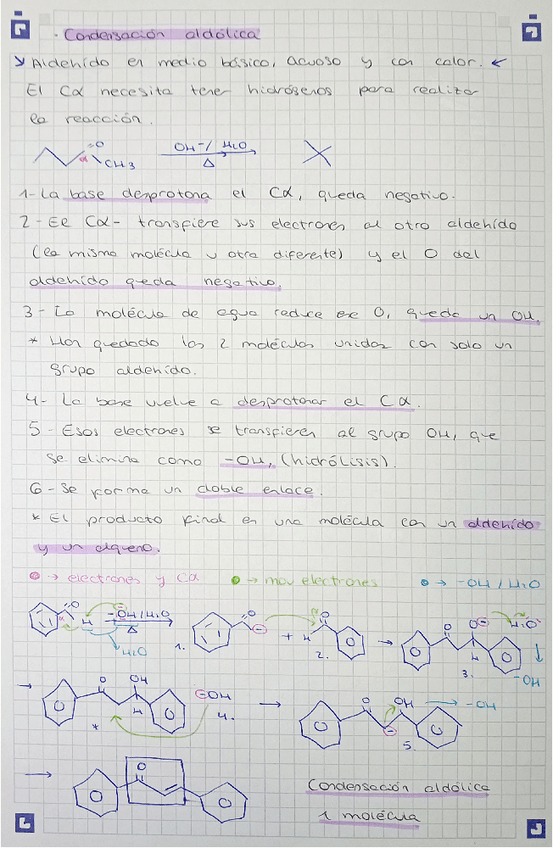 · Condensación aldólica
Aldehído en medio básico, acuoso y con calor.
El Cα necesita tener hidrógenos para realizar
la reacción.
O
α CH3 OH-/ H2O Δ
1- La base desprotona el Cα, queda negativo.
2- El Cα- transfiere sus electrones al otro aldehído
(la misma molécula u otra diferente) y el O del
aldehído queda negativo.
3- La molécula de agua reduce ese O, queda un OH.
* Han quedado las 2 moléculas unidas con solo un
grupo aldehído.
4- La base vuelve a desprotonar el Cα.
5- Esos electrones se transfieren al grupo OH, que
se elimina como -OH, (hidrólisis).
6- Se forma un doble enlace.
* El producto final es una molécula con un aldehído
y un alqueno.
→ electrones y Cα → mov electrones → -OH / H2O
O α H -OH/H2O Δ H2O 1. O + H O 2. → O O H 3. H2O -OH
→ O OH H * OH 4. → O OH 5. → -OH
→ O
Condensación aldólica
1 molécula